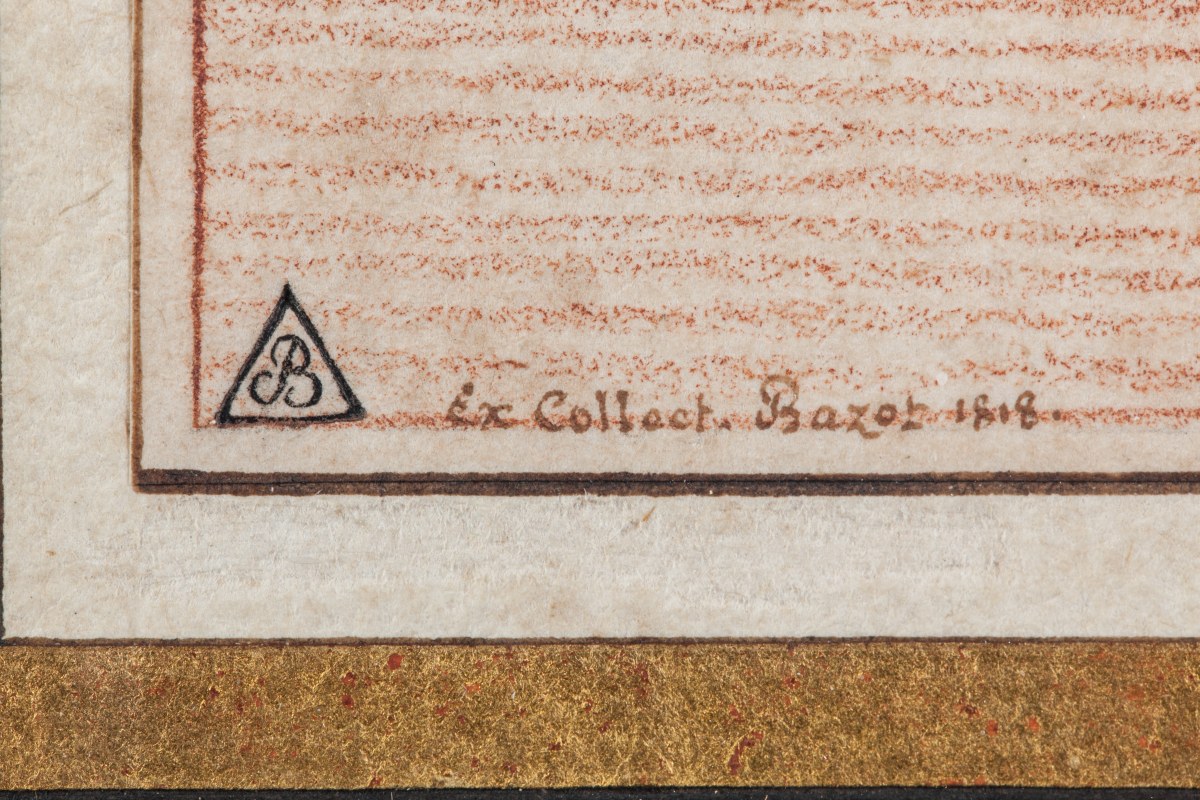 B
Ex Collect. Bazot 1818.